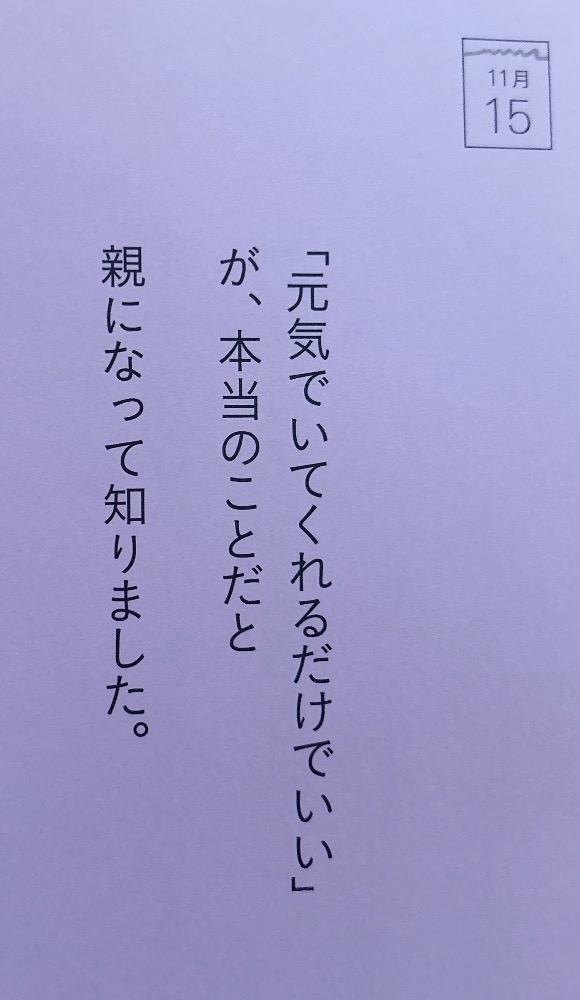 11月
15
「元気でいてくれるだけでいい」
が、本当のことだと
親になって知りました。